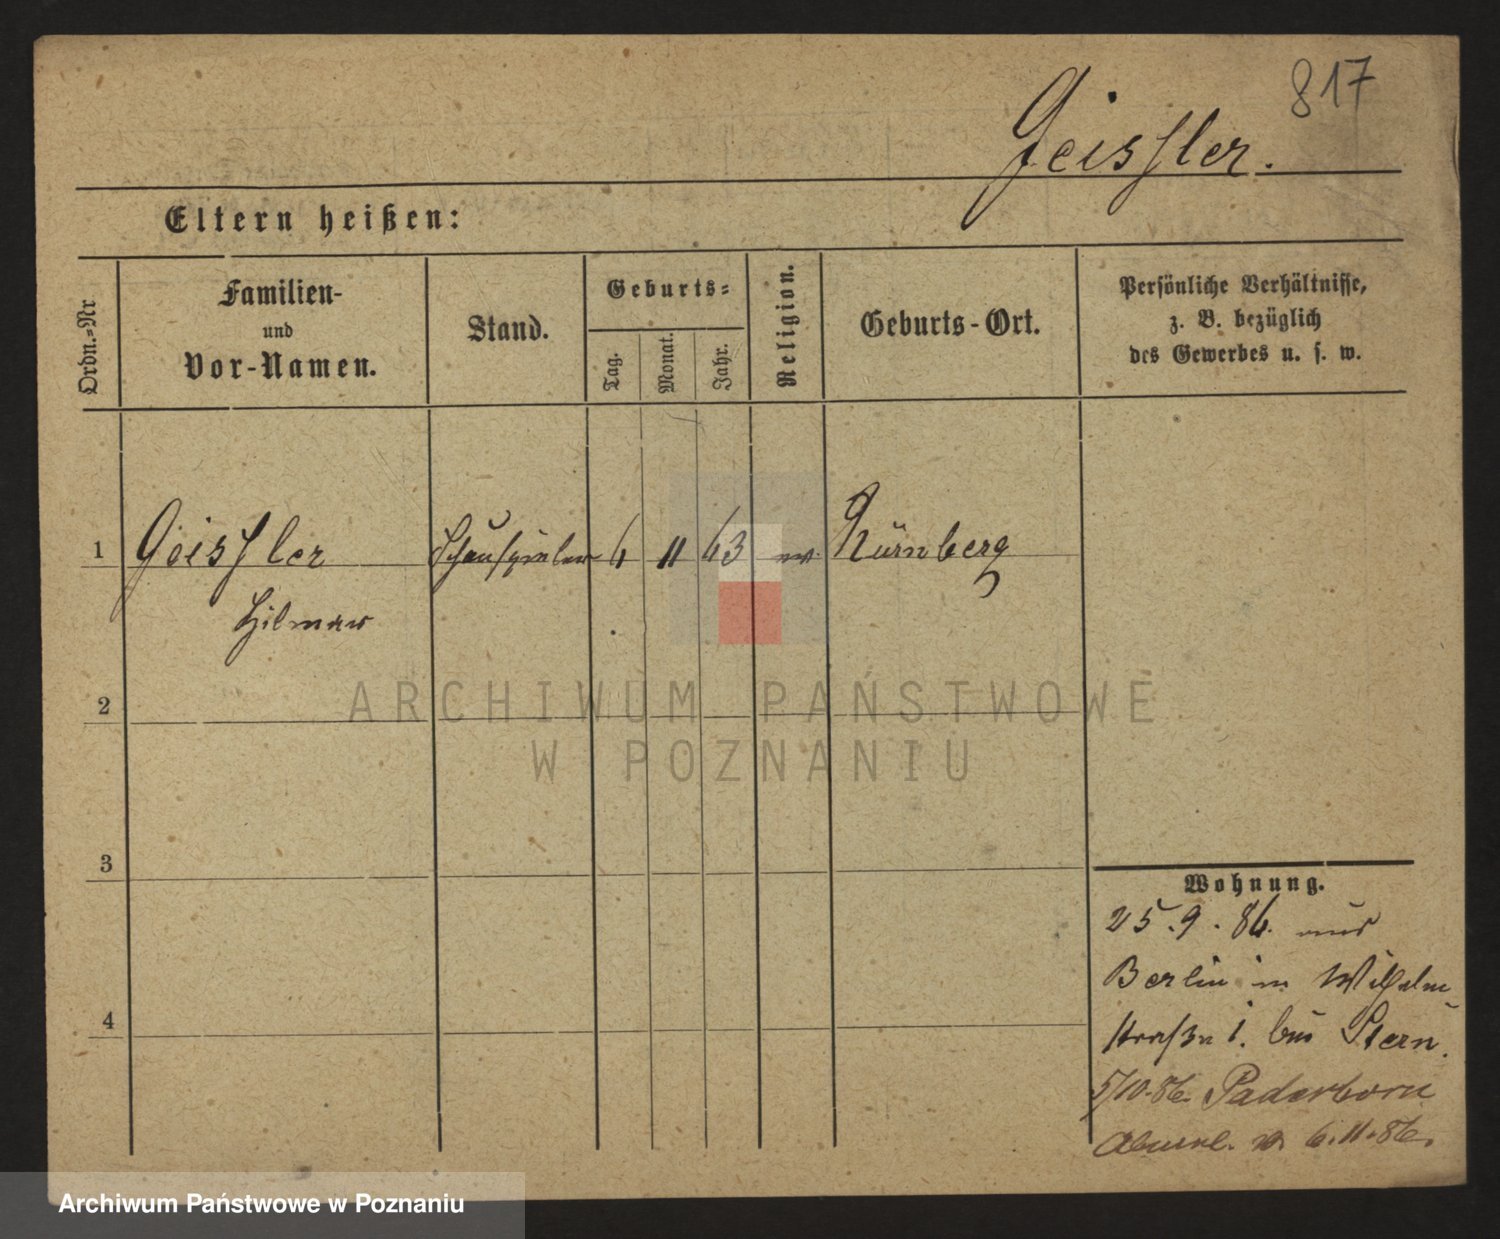 817
Geissler.
Eltern heißen:
Ordn.-Nr
Familien-
und
Vor-Namen.
Stand.
Geburts-
Tag.
Monat.
Jahr.
Religion.
Geburts-Ort.
Persönliche Verhältnisse,
z. B. bezüglich
des Gewerbes u. s. w.
1 Geissler Schauspieler 6 11 63 ev. Nürnberg
Hilmar
2
3
4
ARCHIWUM PAŃSTWOWE
W POZNANIU
Wohnung.
25.9.86. aus
Berlin in Wilhelm-
straße 1. bei Stern.
5/10.86. Paderborn
6.11.86.
Archiwum Państwowe w Poznaniu